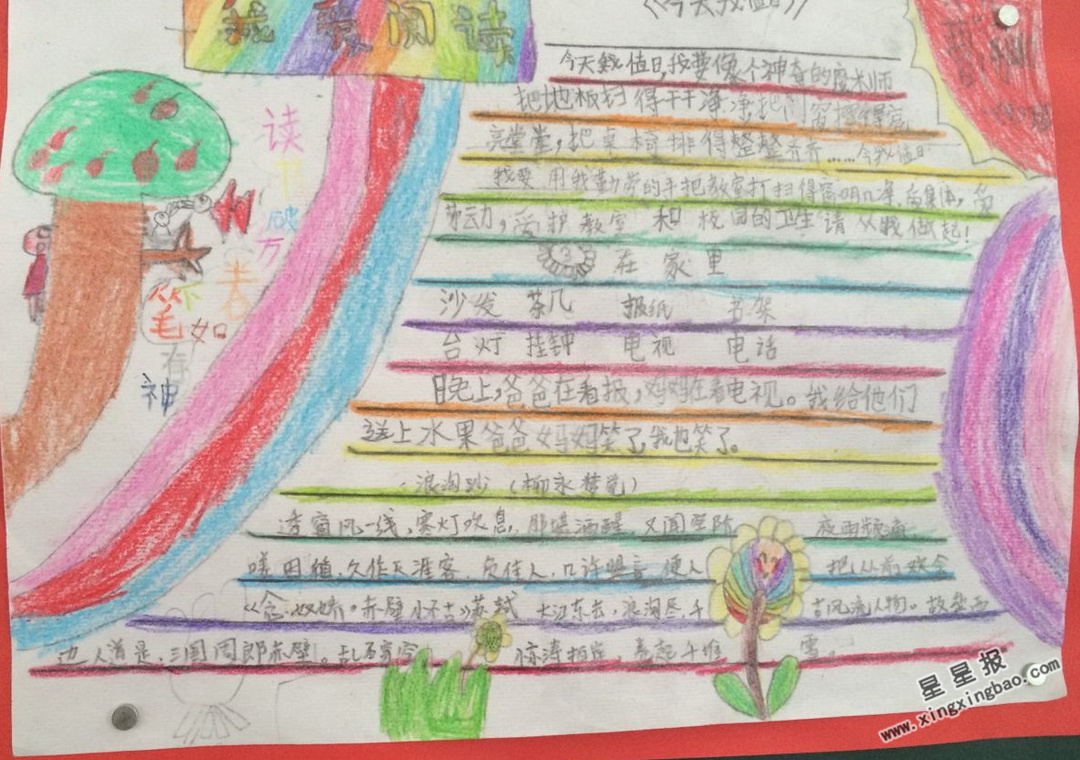 我爱阅读
《今天我值日》
今天我值日，我要做个神奇的魔术师
把地板扫得干干净净把门窗擦得亮
亮堂堂，把桌椅排得整整齐齐……今我值日
我要用我勤劳的手把教室打扫得窗明几净，爱集体，爱
劳动，爱护教室和校园的卫生请从我做起！
3 在家里
沙发 茶几 报纸 书架
台灯 挂钟 电视 电话
晚上，爸爸在看报，妈妈在看电视。我给他们
送上水果爸爸妈妈笑了，我也笑了。
浪淘沙（柳永梦觉）
透窗风一线，寒灯吹息，那堪酒醒，又闻空阶 夜雨频滴
嗟因循，久作天涯客，负佳人，几许盟言 便人 把从前
《念奴娇。赤壁怀古》苏轼 大江东去，浪淘尽，千 古风流人物。故垒西
边 人道是，三国周郎赤壁。乱石穿空 惊涛拍岸，卷起千堆 雪。
读书破万卷
下笔如有神
星星报
www.xingxingbao.com